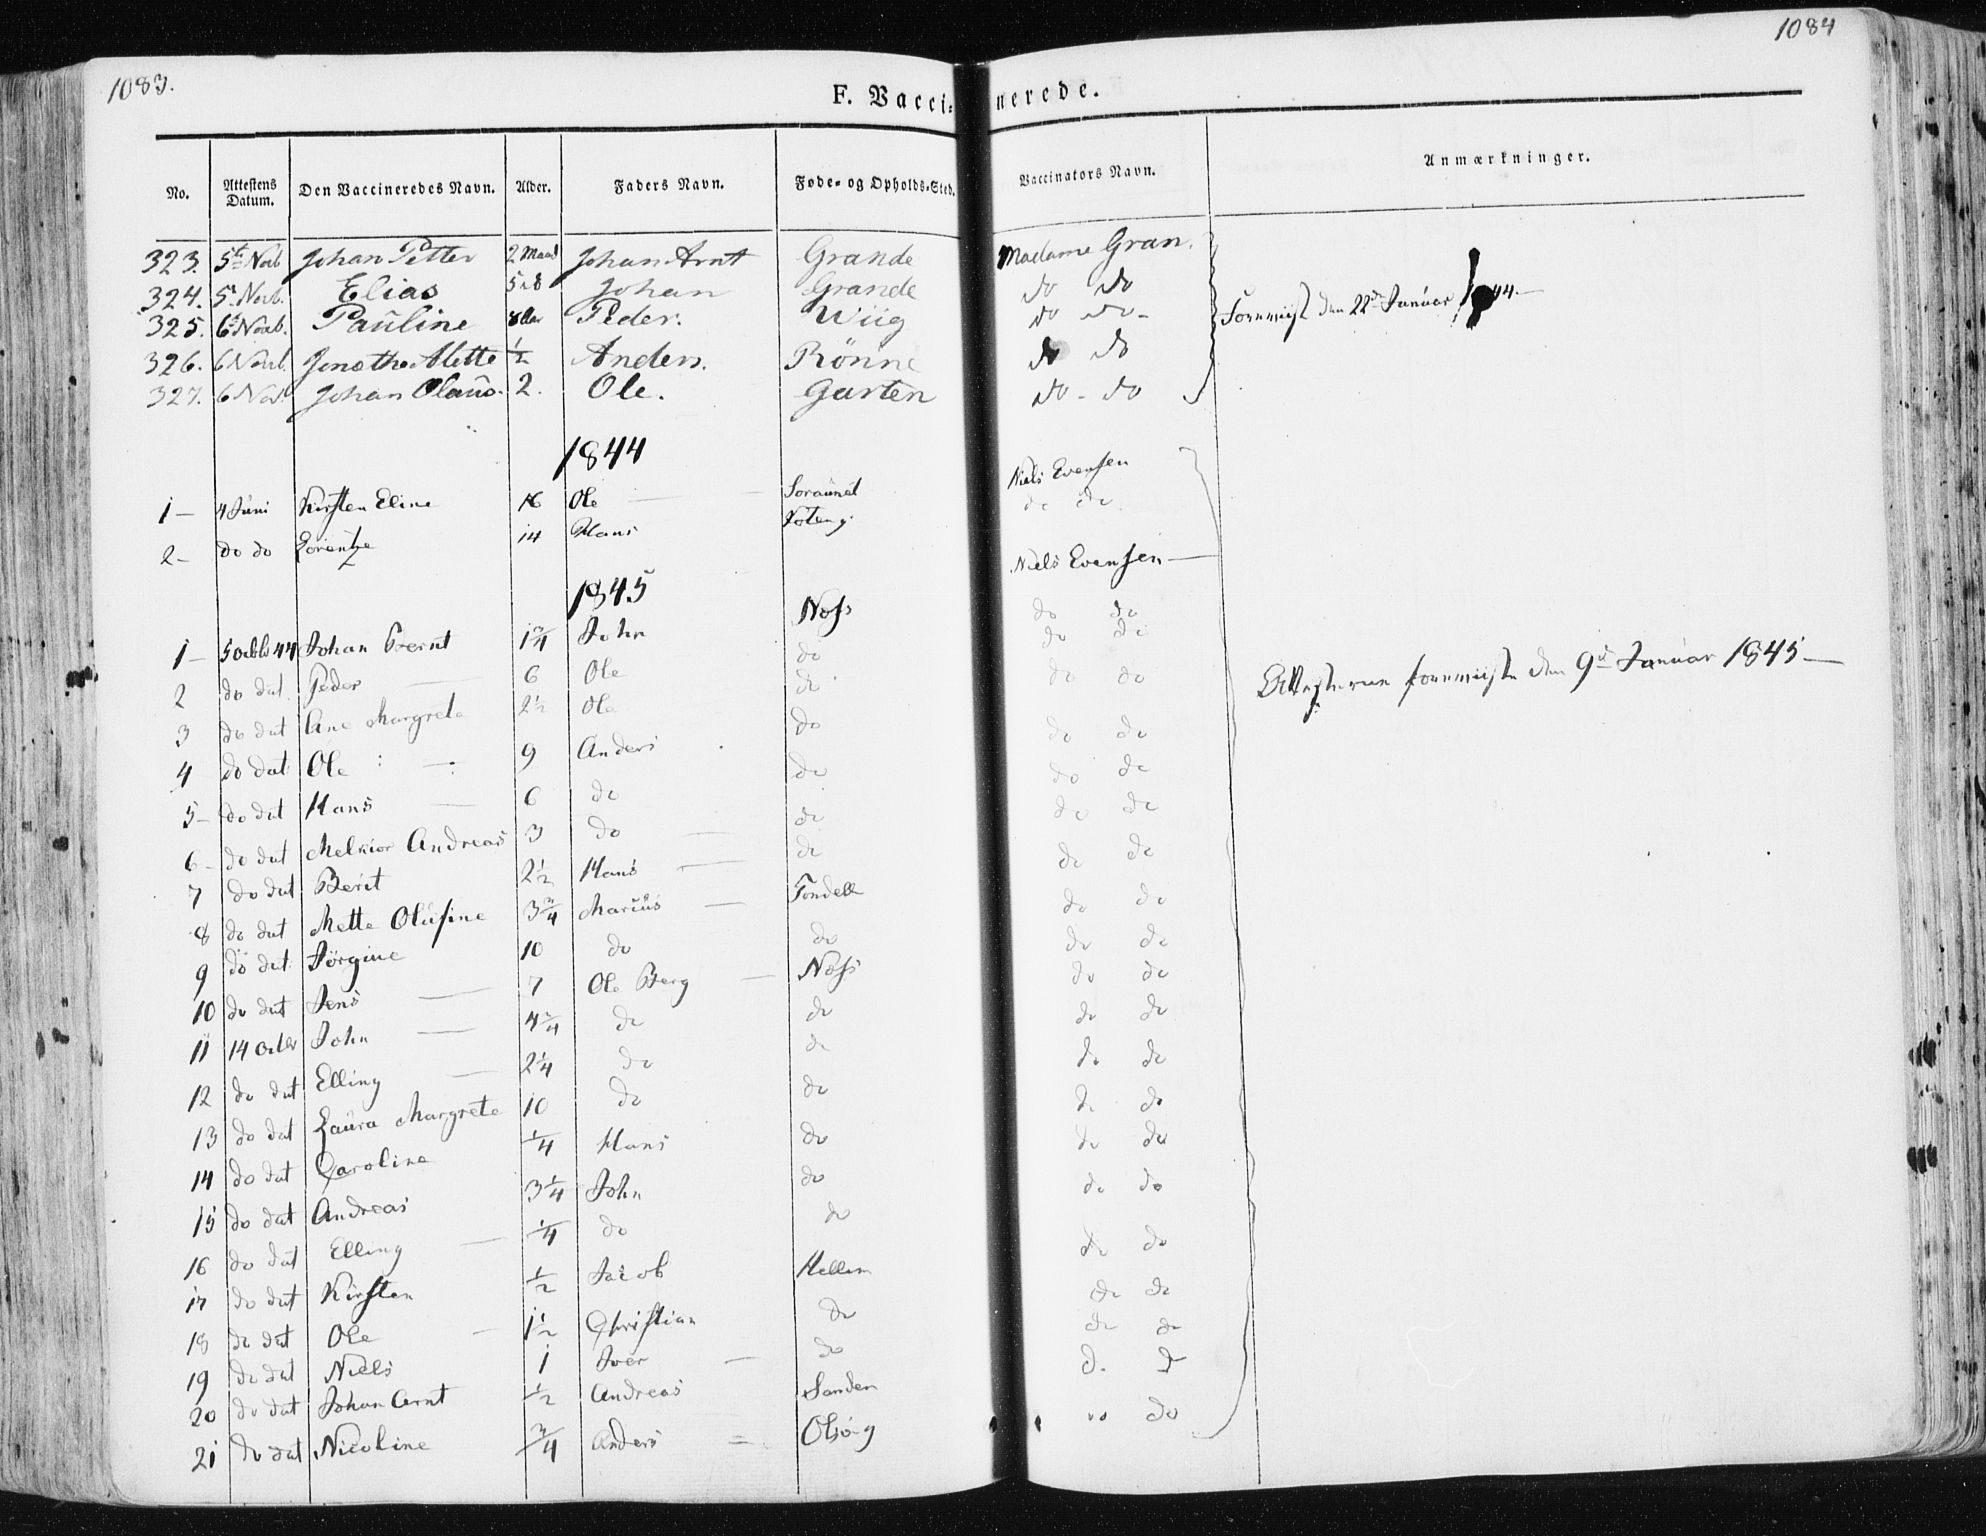 1083.
1084
F. Vaccinerede.
No. Attestens Datum. Den Vaccineredes Navn. Alder. Faders Navn. Føde- og Opholds-Sted. Vaccinators Navn. Anmærkninger.
323. 5te Novb Johan Petter 2 Maand Johan Arnt Grande Madame Gran.
324. 5t Novb. Elias 5 do Johan Grande do do
325. 6t Novb. Pauline Peder. Wiig do do - den 22de Januar 1844.—
326. 6 Novb. Alette 1/2 Anders. Rønne do do
327. 6 Nov. Johan Olaus. 2. Ole. Garten do - do
1844
1 — 4 Juni Kirsten Eline 16 Ole — Niels Evensen
2 - do do Lorentze 14 Hans do do
1845
Niels Evensen —
1 — 5 Octbr 44 Johan Bernt 1 3/4 John Næss do do
2 do dat. Peder — 6 Ole do do do
3 do dat Ane Margrete 2 1/2 Ole do do do
4 do dat Ole 9 Anders do do do
5 - do dat Hans — 6 do do do do
6 - do dat Melkior Andreas 3 do — do do do
7 do dat Berit 2 1/2 Hans — do do do
8 do dat Mette Olufine 3 3/4 Marius — Tondell do do
9 do dat Jörgine 10 do do do do
10 do dat Jens — 7 Ole Berg — Næss do do
11 14 Octbr John — 4 3/4 do do do do
12 do dat Elling — 2 1/4 do do do do
13 do dat Laura Margrete 10 do do do do
14 do dat Caroline 1/4 Hans do do do
15 do dat Andreas 3 1/4 John do do do
16 do dat Elling — 1/4 do do do do
17 do dat Kirsten 1/2 Jacob Hellem do do
18 do dat Ole — 1 1/2 Christian do do do
19 do dat Niels 1 Iver — do do do
20 do dat Johan Arnt 1/2 Andreas Sanden do do
21 do dat Nicoline 3/4 Anders do do
den 9de Januar 1845 —